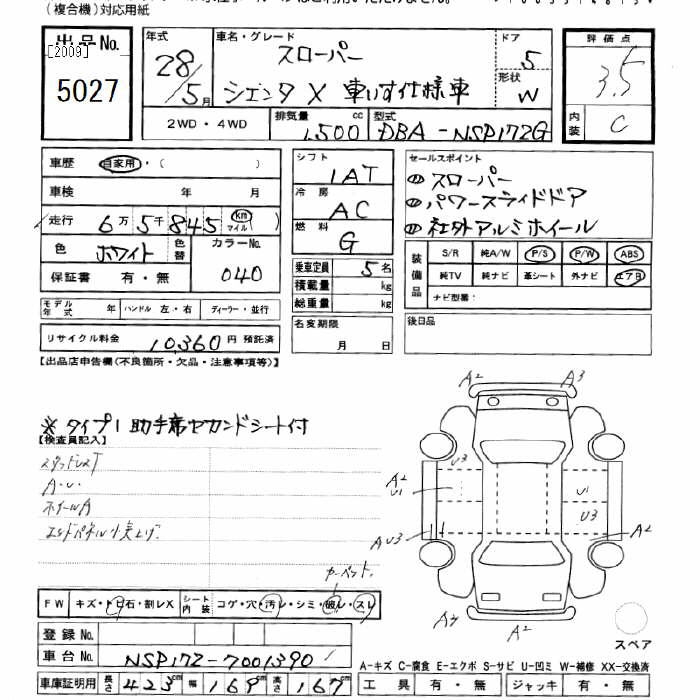 (複合機)対応用紙
出品No.
[2009]
5027
年式
28/5月
車名・グレード
スローパー
シエンタ X 車いす仕様車
ドア
5
形状
W
評価点
3.5
内装
C
2WD・4WD
排気量 1,500 cc
型式 DBA-NSP172G
車歴 自家用・( )
車検 年 月
走行 6万5千845 km マイル ( )
色 ホワイト 色替
カラーNo. 040
保証書 有・無
モデル年式 年 ハンドル 左・右 ディーラー・並行
リサイクル料金 10,360 円 預託済
シフト 1AT
冷房 AC
燃料 G
乗車定員 5名
積載量 kg
総重量 kg
名変期限
月 日
セールスポイント
スローパー
パワースライドドア
社外アルミホイール
装備品
S/R 純A/W P/S P/W ABS
純TV 純ナビ 革シート 外ナビ エアB
ナビ型番:
後日品
【出品店申告欄(不良箇所・欠品・注意事項等)】
※タイプ1 助手席セカンドシート付
【検査員記入】
スタッドレスT
A・U・
ホイールA
エンドパネル小突上げ
カーペット
A2 A3
U3
A2
U1
U1
U3
A U3
A2
A3
A2
スペア
FW キズ・トビ石・割レX
シート内装 コゲ・穴・汚レ・シミ・破レ・スレ
登録No.
車台No. NSP172-7001390
車庫証明用 長さ 423cm 幅 169cm 高さ 167cm
A-キズ C-腐食 E-エクボ S-サビ U-凹ミ W-補修 XX-交換済
工具 有・無 ジャッキ 有・無